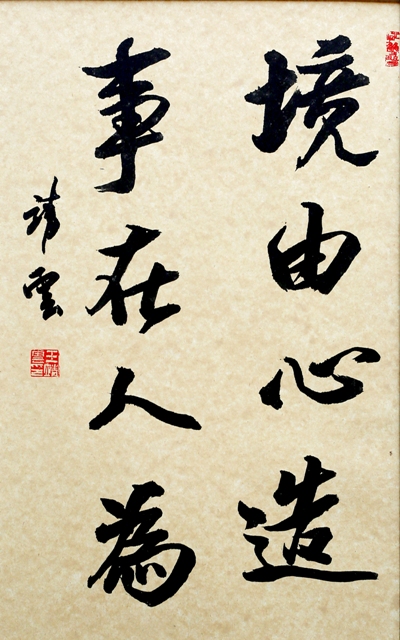 境由心造
事在人為
靖雲